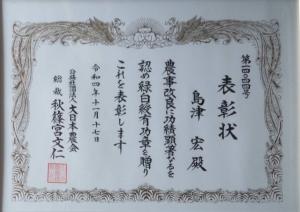 第一四〇四号
表彰状
島津 宏 殿
農事改良に功績顕著なるを
認め緑白綬有功章を贈り
これを表彰します
令和四年十一月十七日
公益社団法人 大日本農会
総裁 秋篠宮文仁